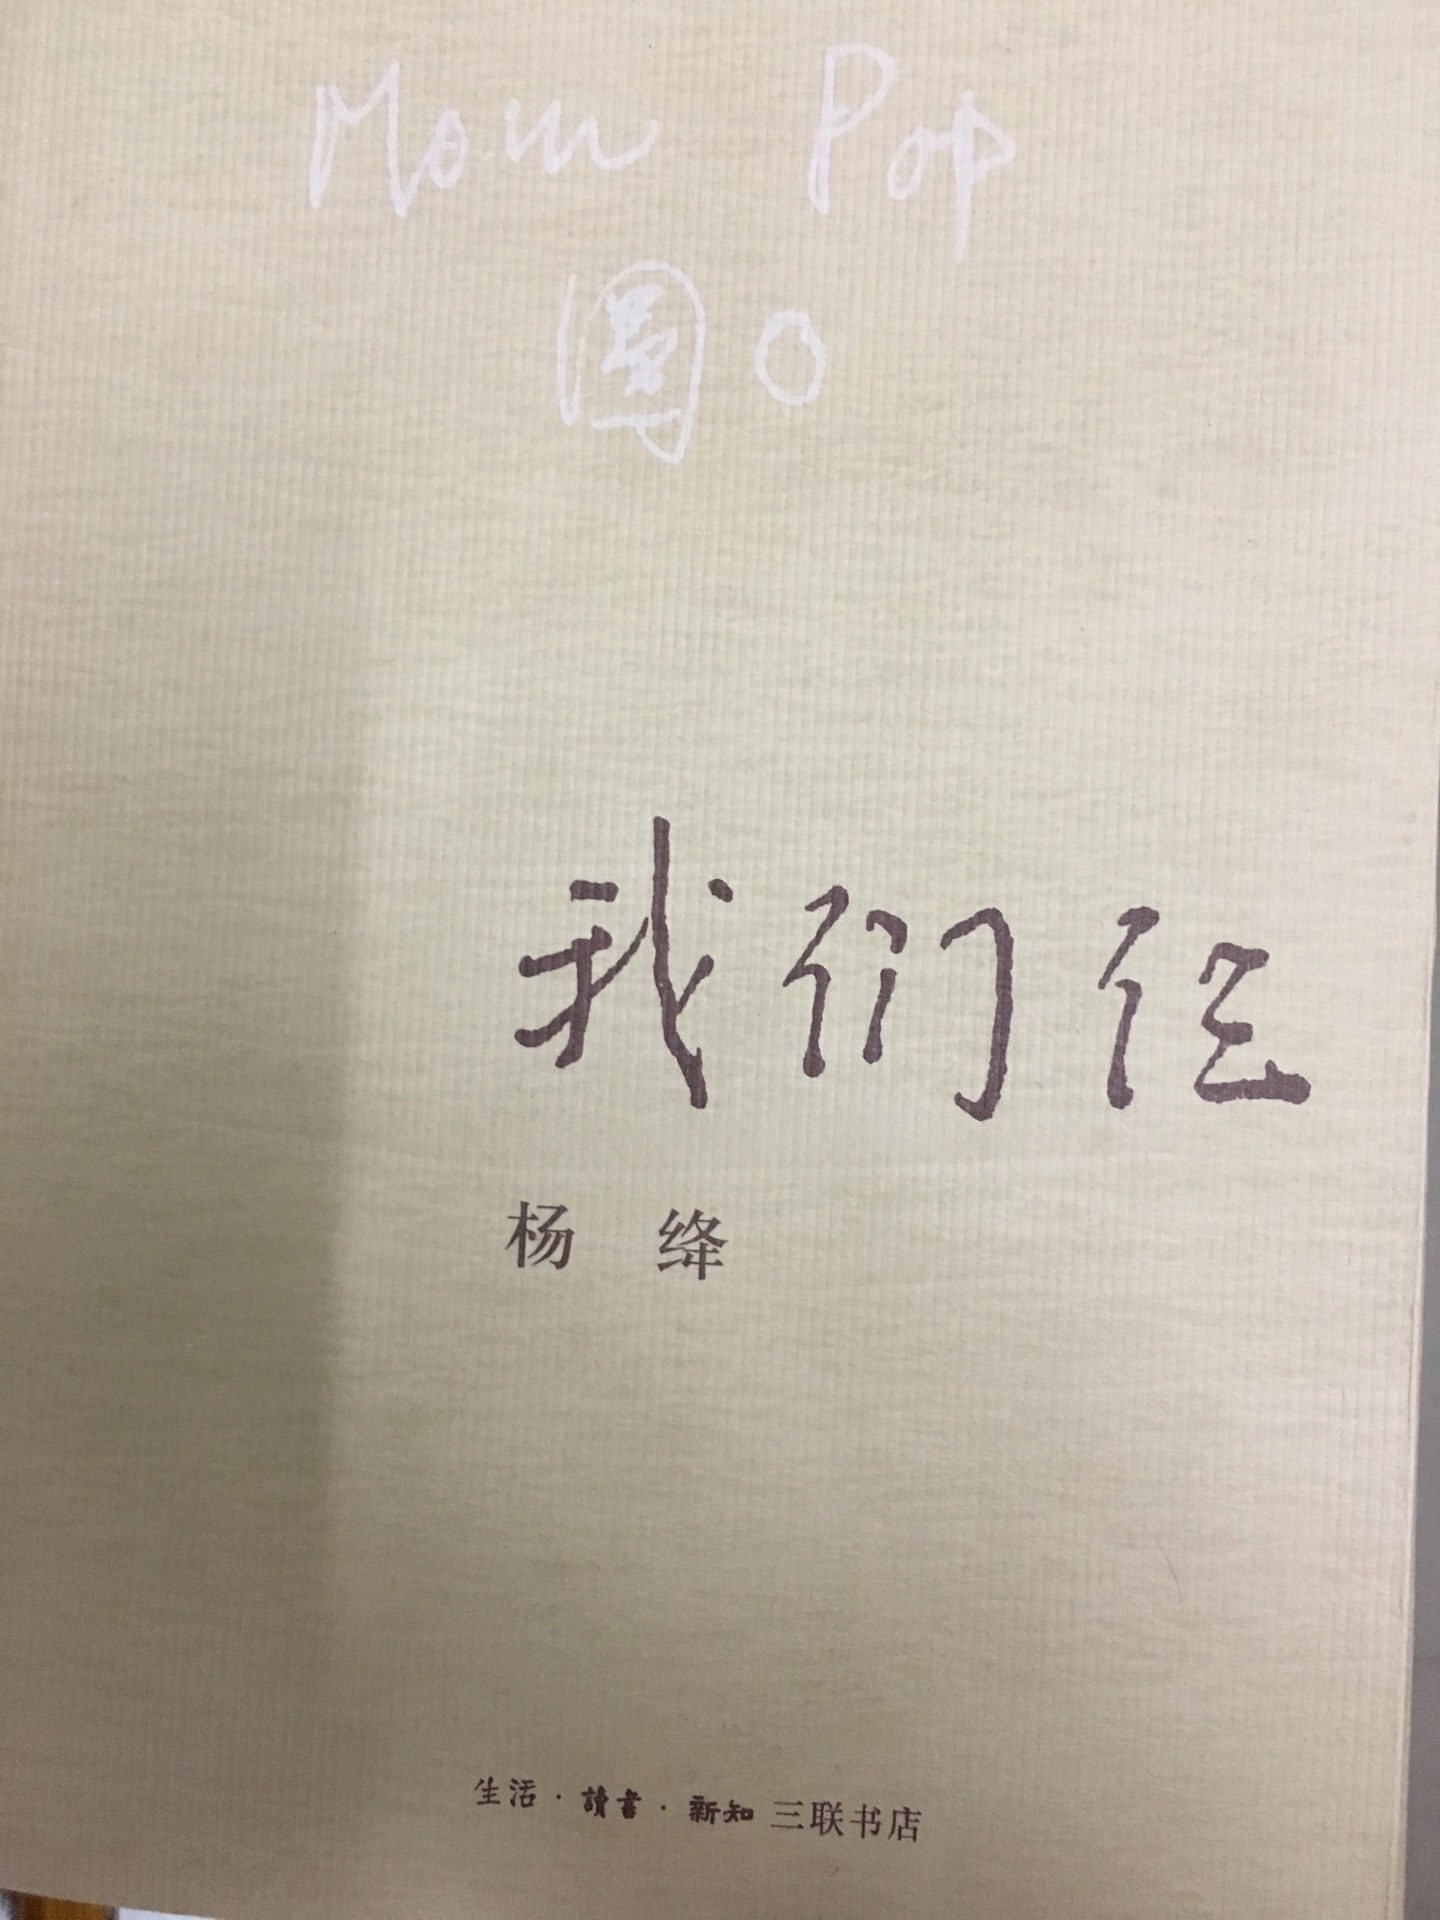 Mom Pop
圓〇
我们仨
杨 绛
生活·讀書·新知 三联书店